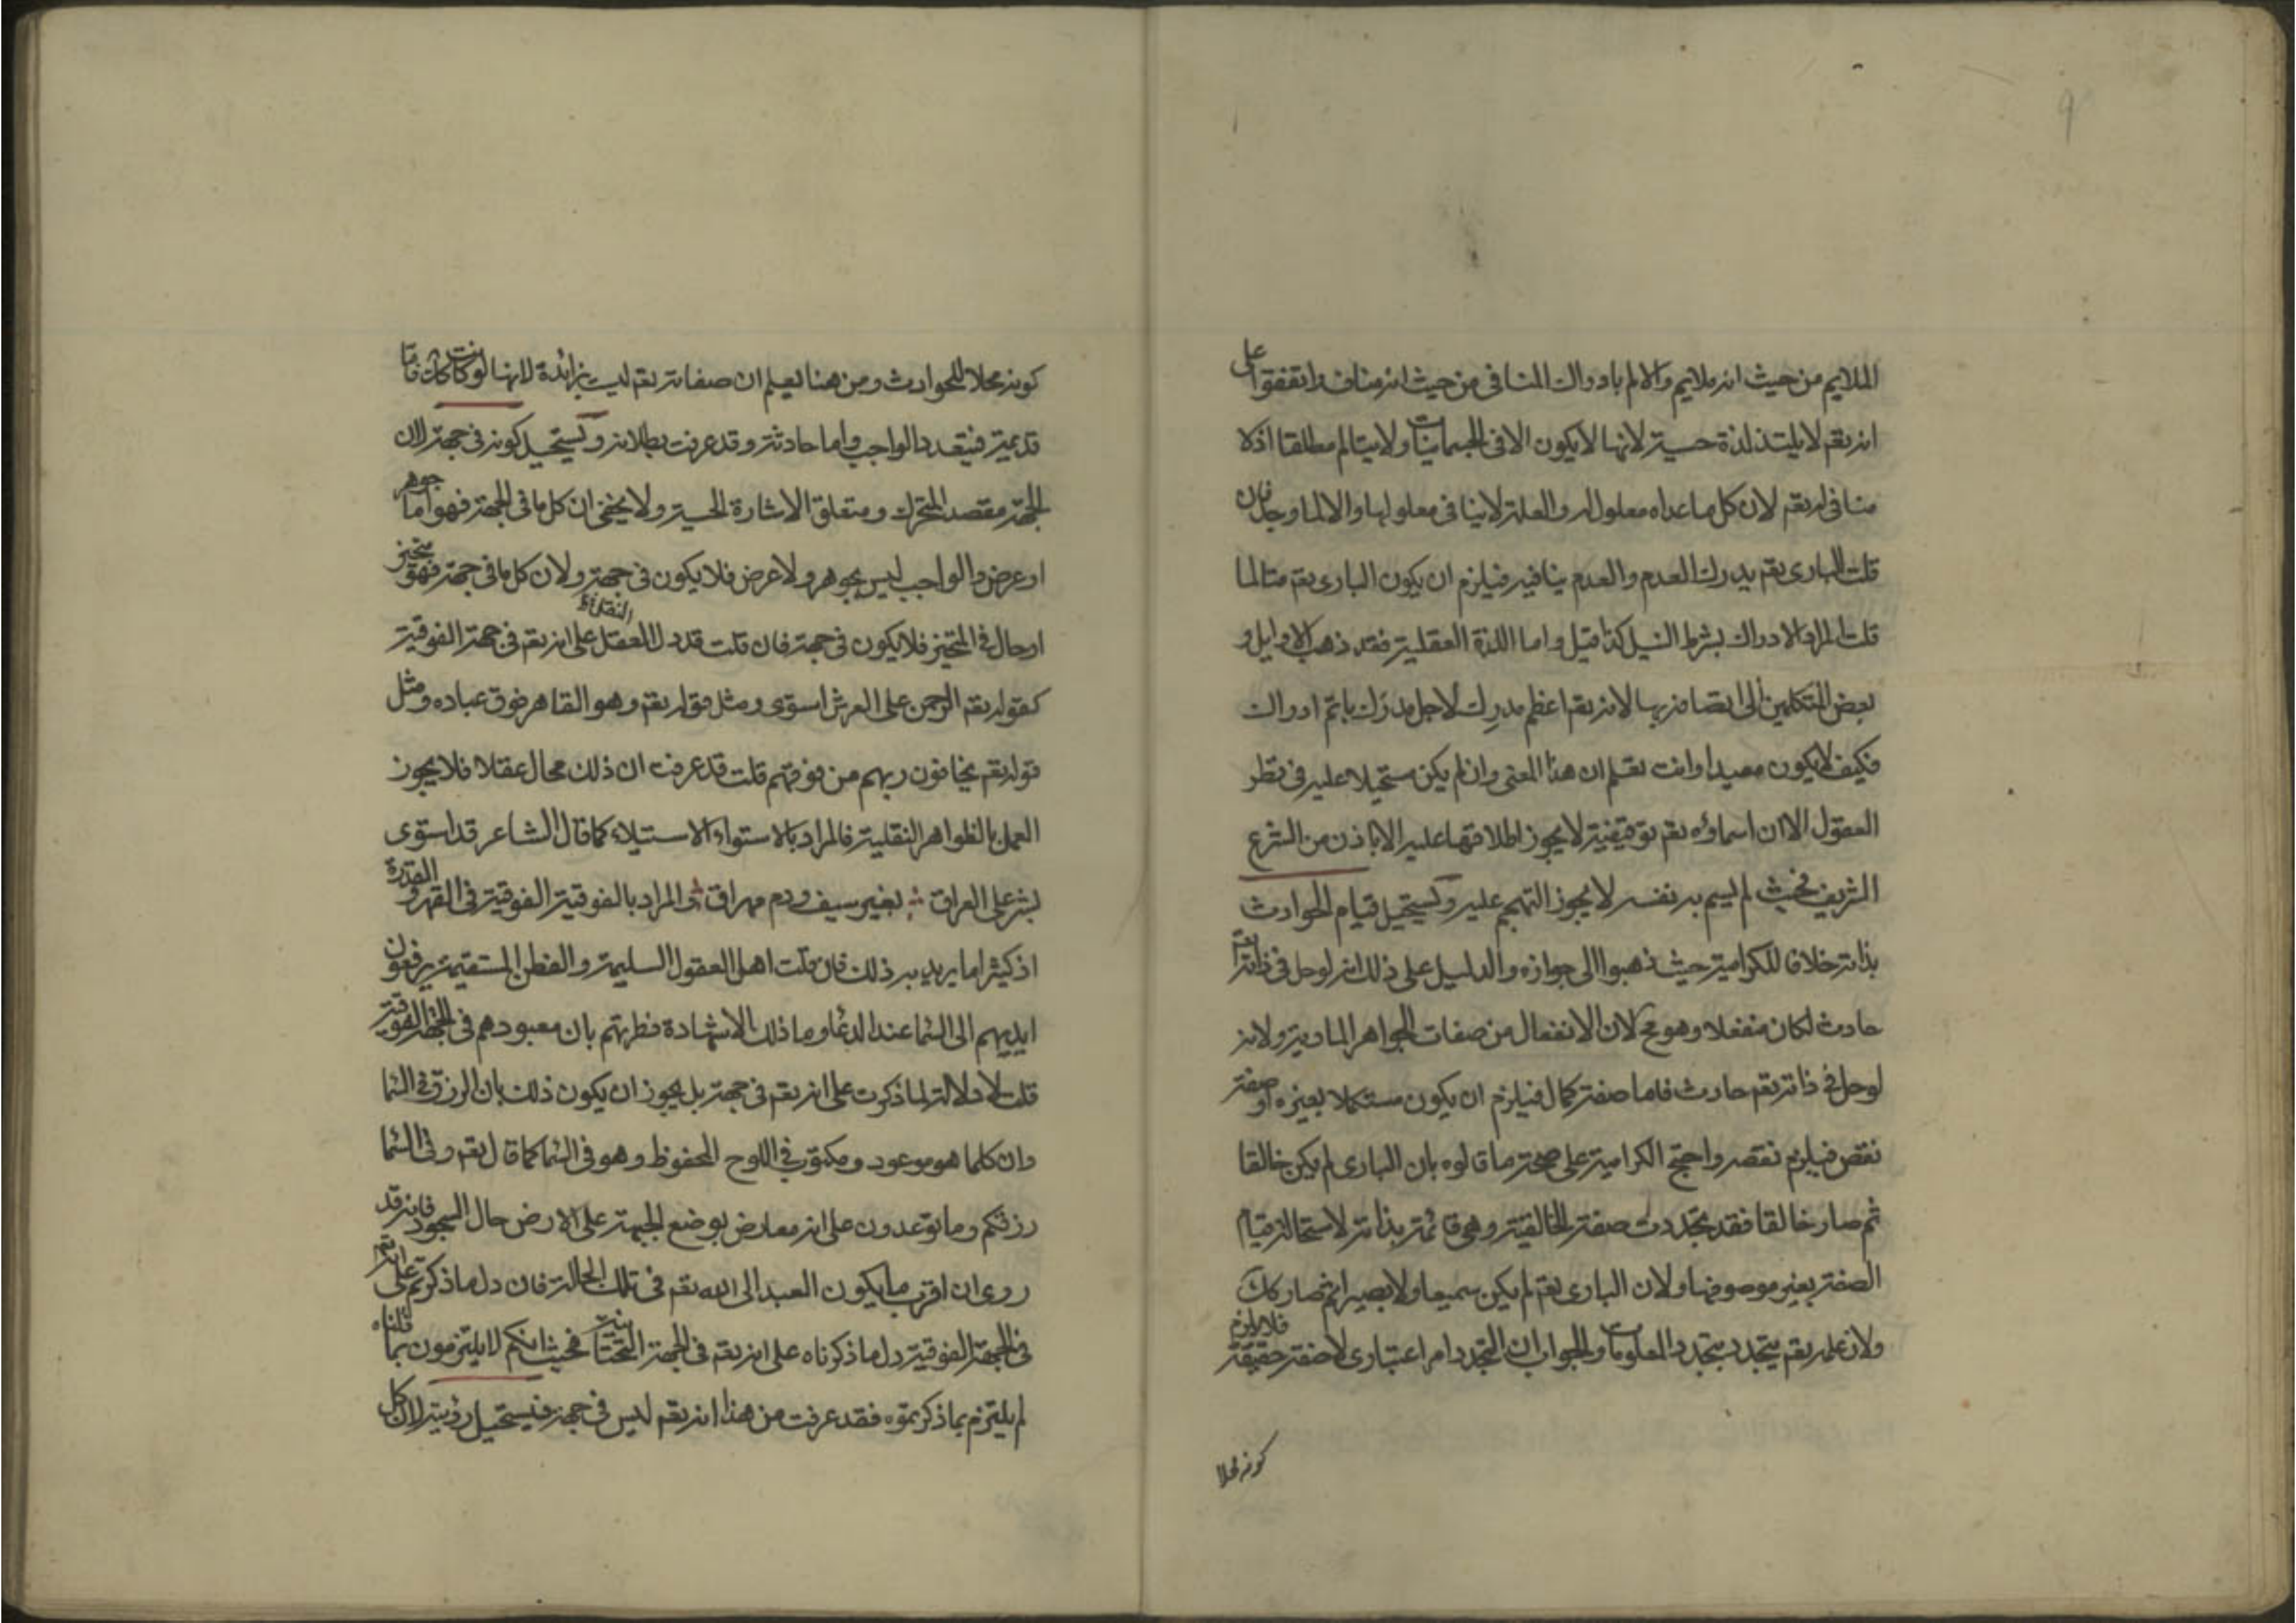 9
الملايم من حيث انه ملايم والالم بادراك المنافى من حيث انه مناف واتفقوا على
انه تعم لا يلتذ لذة حسية لانها لا يكون الا فى الجسمانيات ولا يتالم مطلقا اذ لا
منافى له تعم لان كل ما عداه معلول له والعلة لا ينافى معلولها والا لما وجد فان
قلت البارى تعم يدرك العدم والعدم ينافيه فيلزم ان يكون البارى تعم متالما
قلت المراد الادراك بشرط النيل كذا قيل واما اللذة العقلية فقد ذهب الاوايل و
بعض المتكلمين الى اتصافه بها لانه تعم اعظم مدرِك لاجل مدرَك باتم ادراك
فكيف لا يكون وانت تعلم ان هذا المعنى وان لم يكن مستحيلا عليه فى نظر
العقول الا ان اسماؤه تعم توقيفية لا يجوز اطلاقها عليه الا باذن من الشرع
الشريف فحيث لم يسم به نفسه لا يجوز التهجم عليه ويستحيل قيام الحوادث
بذاته خلافا للكرامية حيث ذهبوا الى جوازه والدليل على ذلك انه لوحل فى ذاته تعم
حادث لكان منفعلا وهو مح لان الانفعال من صفات الجواهر المادية ولانه
لوحل فى ذاته تعم حادث فاما صفة كمال فيلزم ان يكون مستكملا بغيره او صفة
نقص فيلزم نقصه واحتج الكرامية على صحة ما قالوه بان البارى لم يكن خالقا
ثم صار خالقا فقد تجددت صفة الخالقية وهى قائمة بذاته لاستحالة قيام
الصفة بغير موصوفها ولان البارى تعم لم يكن سميعا ولا بصيرا ثم صار كك
ولان علمه تعم يتجدد بتجدد المعلومات والجواب ان التجدد امر اعتبارى لا صفة حقيقة فلا يلزم
كونه محلا
كونه محلا للحوادث ومن هنا يعلم ان صفاته تعم ليست بزائدة لانها لو كانت كك فاما
قديمة فيتعدد الواجب واما حادثة وقد عرفت بطلانه ويستحيل كونه فى جهة لان
الجهة مقصد المتحرك ومتعلق الاشارة الحسية ولا يخفى ان كل ما فى الجهة فهو اما جوهر
او عرض والواجب ليس بجوهر ولا عرض فلا يكون فى جهة ولان كل ما فى جهة فهو متحيز
او حال فى المتحيز فلا يكون فى جهة فان قلت قد دل العقل والنقل على انه تعم فى جهة الفوقية
كقوله تعم الرحمن على العرش استوى ومثل قوله تعم وهو القاهر فوق عباده ومثل
قوله تعم يخافون ربهم من فوقهم قلت قد عرفت ان ذلك محال عقلا فلا يجوز
العمل بالظواهر النقلية فالمراد بالاستواء الاستيلاء كما قال الشاعر قد استوى
بشر على العراق ؞ بغير سيف ودم مهراق ؞ والمراد بالفوقية الفوقية فى القهر والقدرة
اذ كثيرا ما يريد به ذلك فان قلت اهل العقول السليمة والفطن المستقيمة يرفعون
ايديهم الى السما عند الدعا وما ذلك الا لشهادة فطرتهم بان معبودهم فى الجهة الفوقية
قلت لا دلالة لما ذكرت على انه تعم فى جهة بل يجوز ان يكون ذلك بان الرزق فى السما
وان كلما هو موعود ومكتوب فى اللوح المحفوظ وهو فى السما كما قال تعم وفى السما
رزقكم وما توعدون على انه معارض بوضع الجبهة على الارض حال السجود فانه قد
روى ان اقرب ما يكون العبد الى الله تعم فى تلك الحالة فان دل ما ذكرتم على انه تعم
فى الجهة الفوقية دل ما ذكرناه على انه تعم فى الجهة التحتانية فحيث انكم لا يلتزمون بما قلناه
لم يلتزم بما ذكرتموه فقد عرفت من هذا انه تعم ليس فى جهة فيستحيل رؤيته لان كل